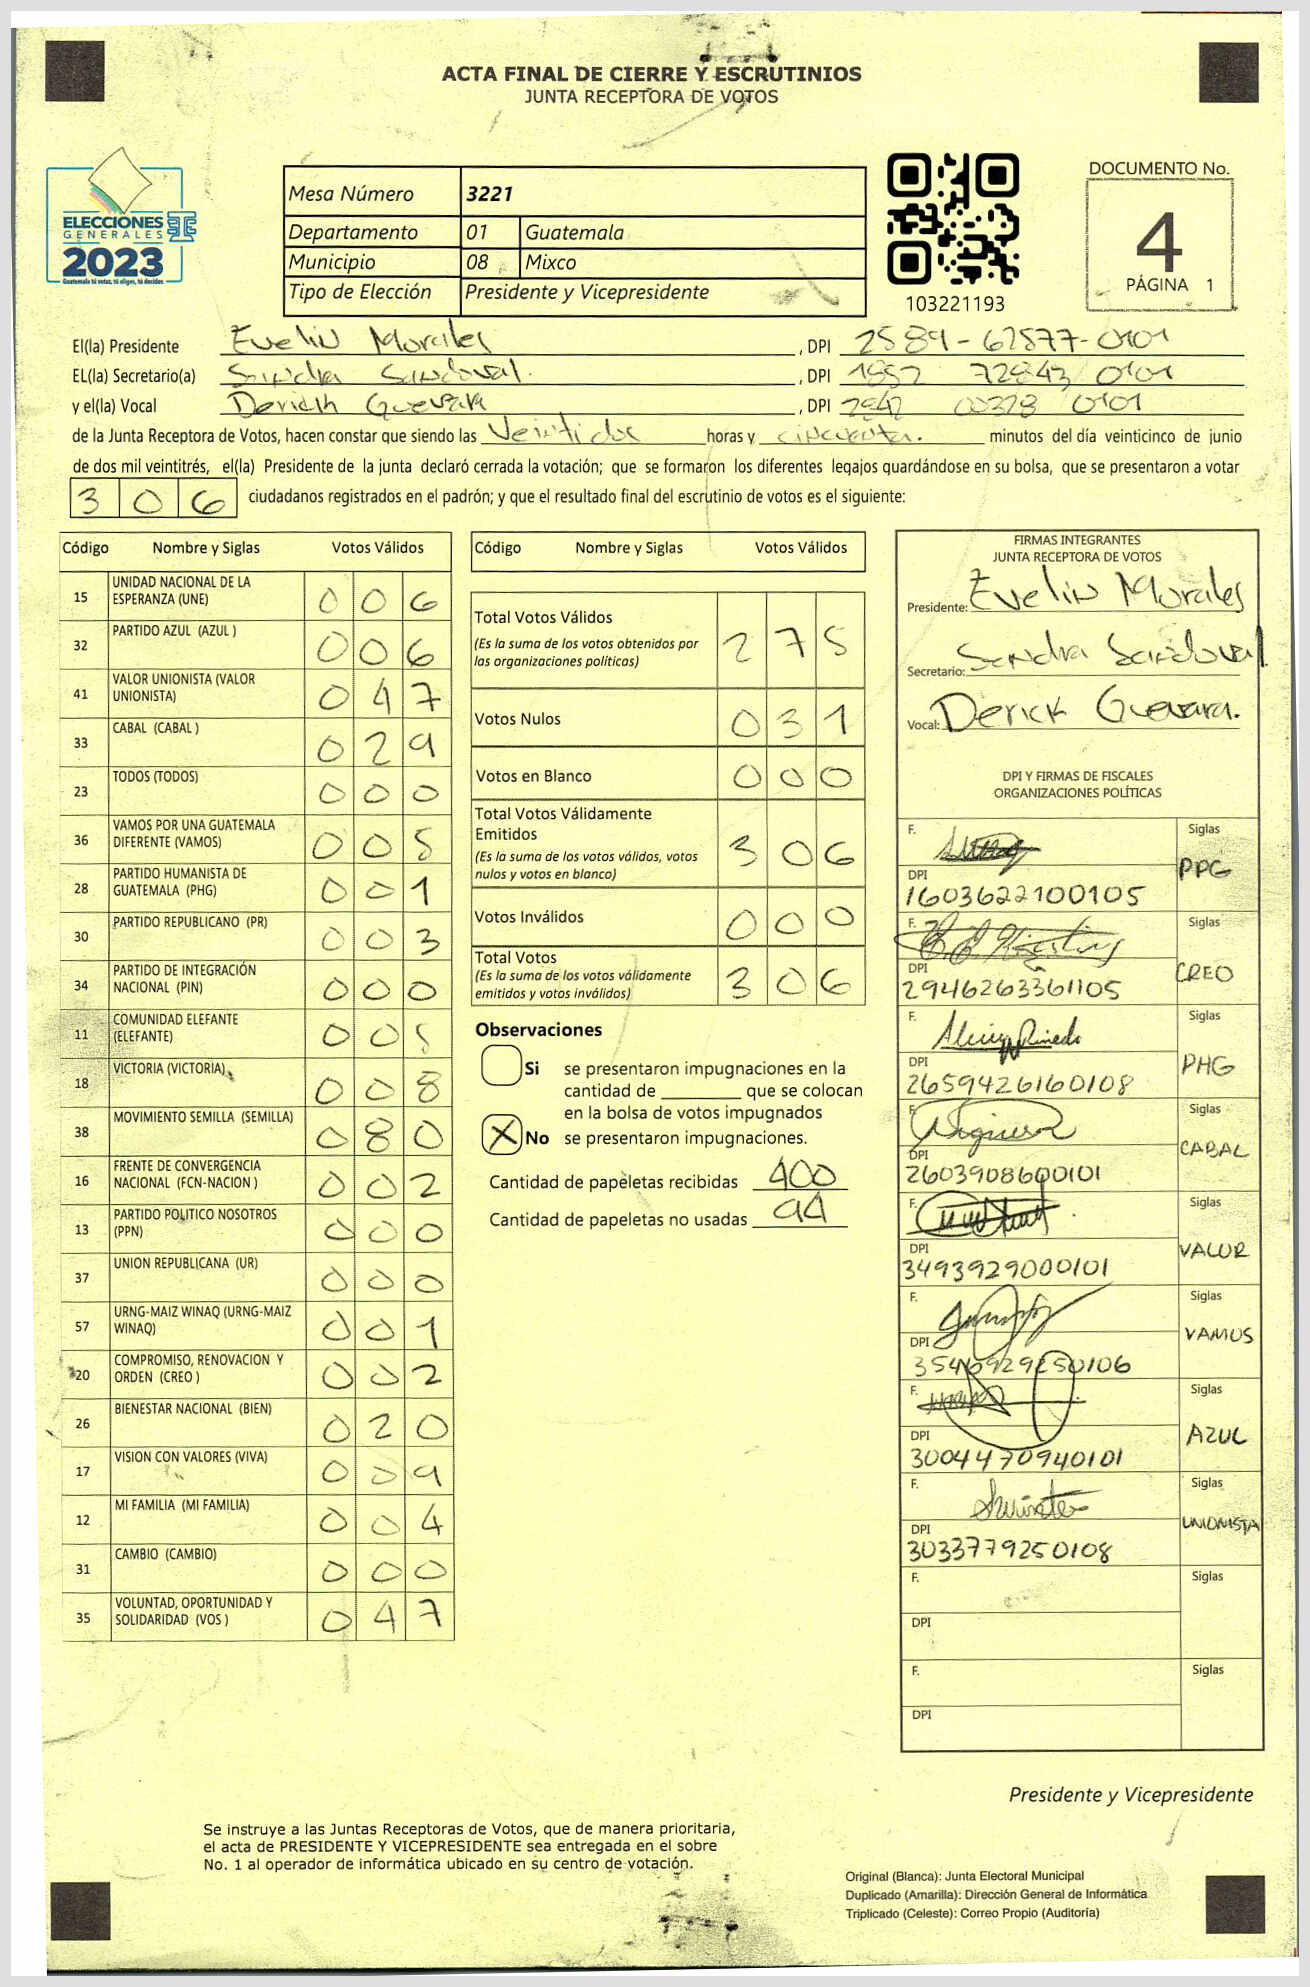 ACTA FINAL DE CIERRE Y ESCRUTINIOS
JUNTA RECEPTORA DE VOTOS
ELECCIONES
GENERALES
2023
Guatemala tú votas, tú eliges, tú decides
Mesa Número 3221
Departamento 01 Guatemala
Municipio 08 Mixco
Tipo de Elección Presidente y Vicepresidente
103221193
DOCUMENTO No.
4
PÁGINA 1
El(la) Presidente Evelin Morales , DPI 2589-62577-0101
EL(la) Secretario(a) Sandra Sandoval. , DPI 1852 72843 0101
y el(la) Vocal Derick Guevara , DPI 2942 00328 0101
de la Junta Receptora de Votos, hacen constar que siendo las Veintidos horas y cincuenta. minutos del día veinticinco de junio
de dos mil veintitrés, el(la) Presidente de la junta declaró cerrada la votación; que se formaron los diferentes legajos guardándose en su bolsa, que se presentaron a votar
306 ciudadanos registrados en el padrón; y que el resultado final del escrutinio de votos es el siguiente:
Código Nombre y Siglas Votos Válidos
15 UNIDAD NACIONAL DE LA ESPERANZA (UNE) 006
32 PARTIDO AZUL (AZUL ) 006
41 VALOR UNIONISTA (VALOR UNIONISTA) 047
33 CABAL (CABAL ) 029
23 TODOS (TODOS) 000
36 VAMOS POR UNA GUATEMALA DIFERENTE (VAMOS) 005
28 PARTIDO HUMANISTA DE GUATEMALA (PHG) 001
30 PARTIDO REPUBLICANO (PR) 003
34 PARTIDO DE INTEGRACIÓN NACIONAL (PIN) 000
11 COMUNIDAD ELEFANTE (ELEFANTE) 005
18 VICTORIA (VICTORIA) 008
38 MOVIMIENTO SEMILLA (SEMILLA) 080
16 FRENTE DE CONVERGENCIA NACIONAL (FCN-NACION ) 002
13 PARTIDO POLITICO NOSOTROS (PPN) 000
37 UNION REPUBLICANA (UR) 000
57 URNG-MAIZ WINAQ (URNG-MAIZ WINAQ) 001
20 COMPROMISO, RENOVACION Y ORDEN (CREO ) 002
26 BIENESTAR NACIONAL (BIEN) 020
17 VISION CON VALORES (VIVA) 009
12 MI FAMILIA (MI FAMILIA) 004
31 CAMBIO (CAMBIO) 000
35 VOLUNTAD, OPORTUNIDAD Y SOLIDARIDAD (VOS ) 047
Código Nombre y Siglas Votos Válidos
Total Votos Válidos 275
(Es la suma de los votos obtenidos por
las organizaciones políticas)
Votos Nulos 031
Votos en Blanco 000
Total Votos Válidamente
Emitidos 306
(Es la suma de los votos válidos, votos
nulos y votos en blanco)
Votos Inválidos 000
Total Votos 306
(Es la suma de los votos válidamente
emitidos y votos inválidos)
Observaciones
Si se presentaron impugnaciones en la
cantidad de ________ que se colocan
en la bolsa de votos impugnados
X No se presentaron impugnaciones.
Cantidad de papeletas recibidas 400
Cantidad de papeletas no usadas 94
FIRMAS INTEGRANTES
JUNTA RECEPTORA DE VOTOS
Presidente: Evelin Morales
Secretario: Sandra Sandoval
Vocal: Derick Guevara.
DPI Y FIRMAS DE FISCALES
ORGANIZACIONES POLÍTICAS
F. Siglas
PPG
DPI
1603622100105
F. Siglas
CREO
DPI
2946263361105
F. Siglas
PHG
DPI
2659426160108
F. Siglas
CABAL
DPI
2603908600101
F. Siglas
VALOR
DPI
3493929000101
F. Siglas
VAMOS
DPI
3546929250106
F. Siglas
AZUL
DPI
3004470940101
F. Siglas
UNIONISTA
DPI
3033779250108
F. Siglas
DPI
F. Siglas
DPI
Presidente y Vicepresidente
Se instruye a las Juntas Receptoras de Votos, que de manera prioritaria,
el acta de PRESIDENTE Y VICEPRESIDENTE sea entregada en el sobre
No. 1 al operador de informática ubicado en su centro de votación.
Original (Blanca): Junta Electoral Municipal
Duplicado (Amarilla): Dirección General de Informática
Triplicado (Celeste): Correo Propio (Auditoría)